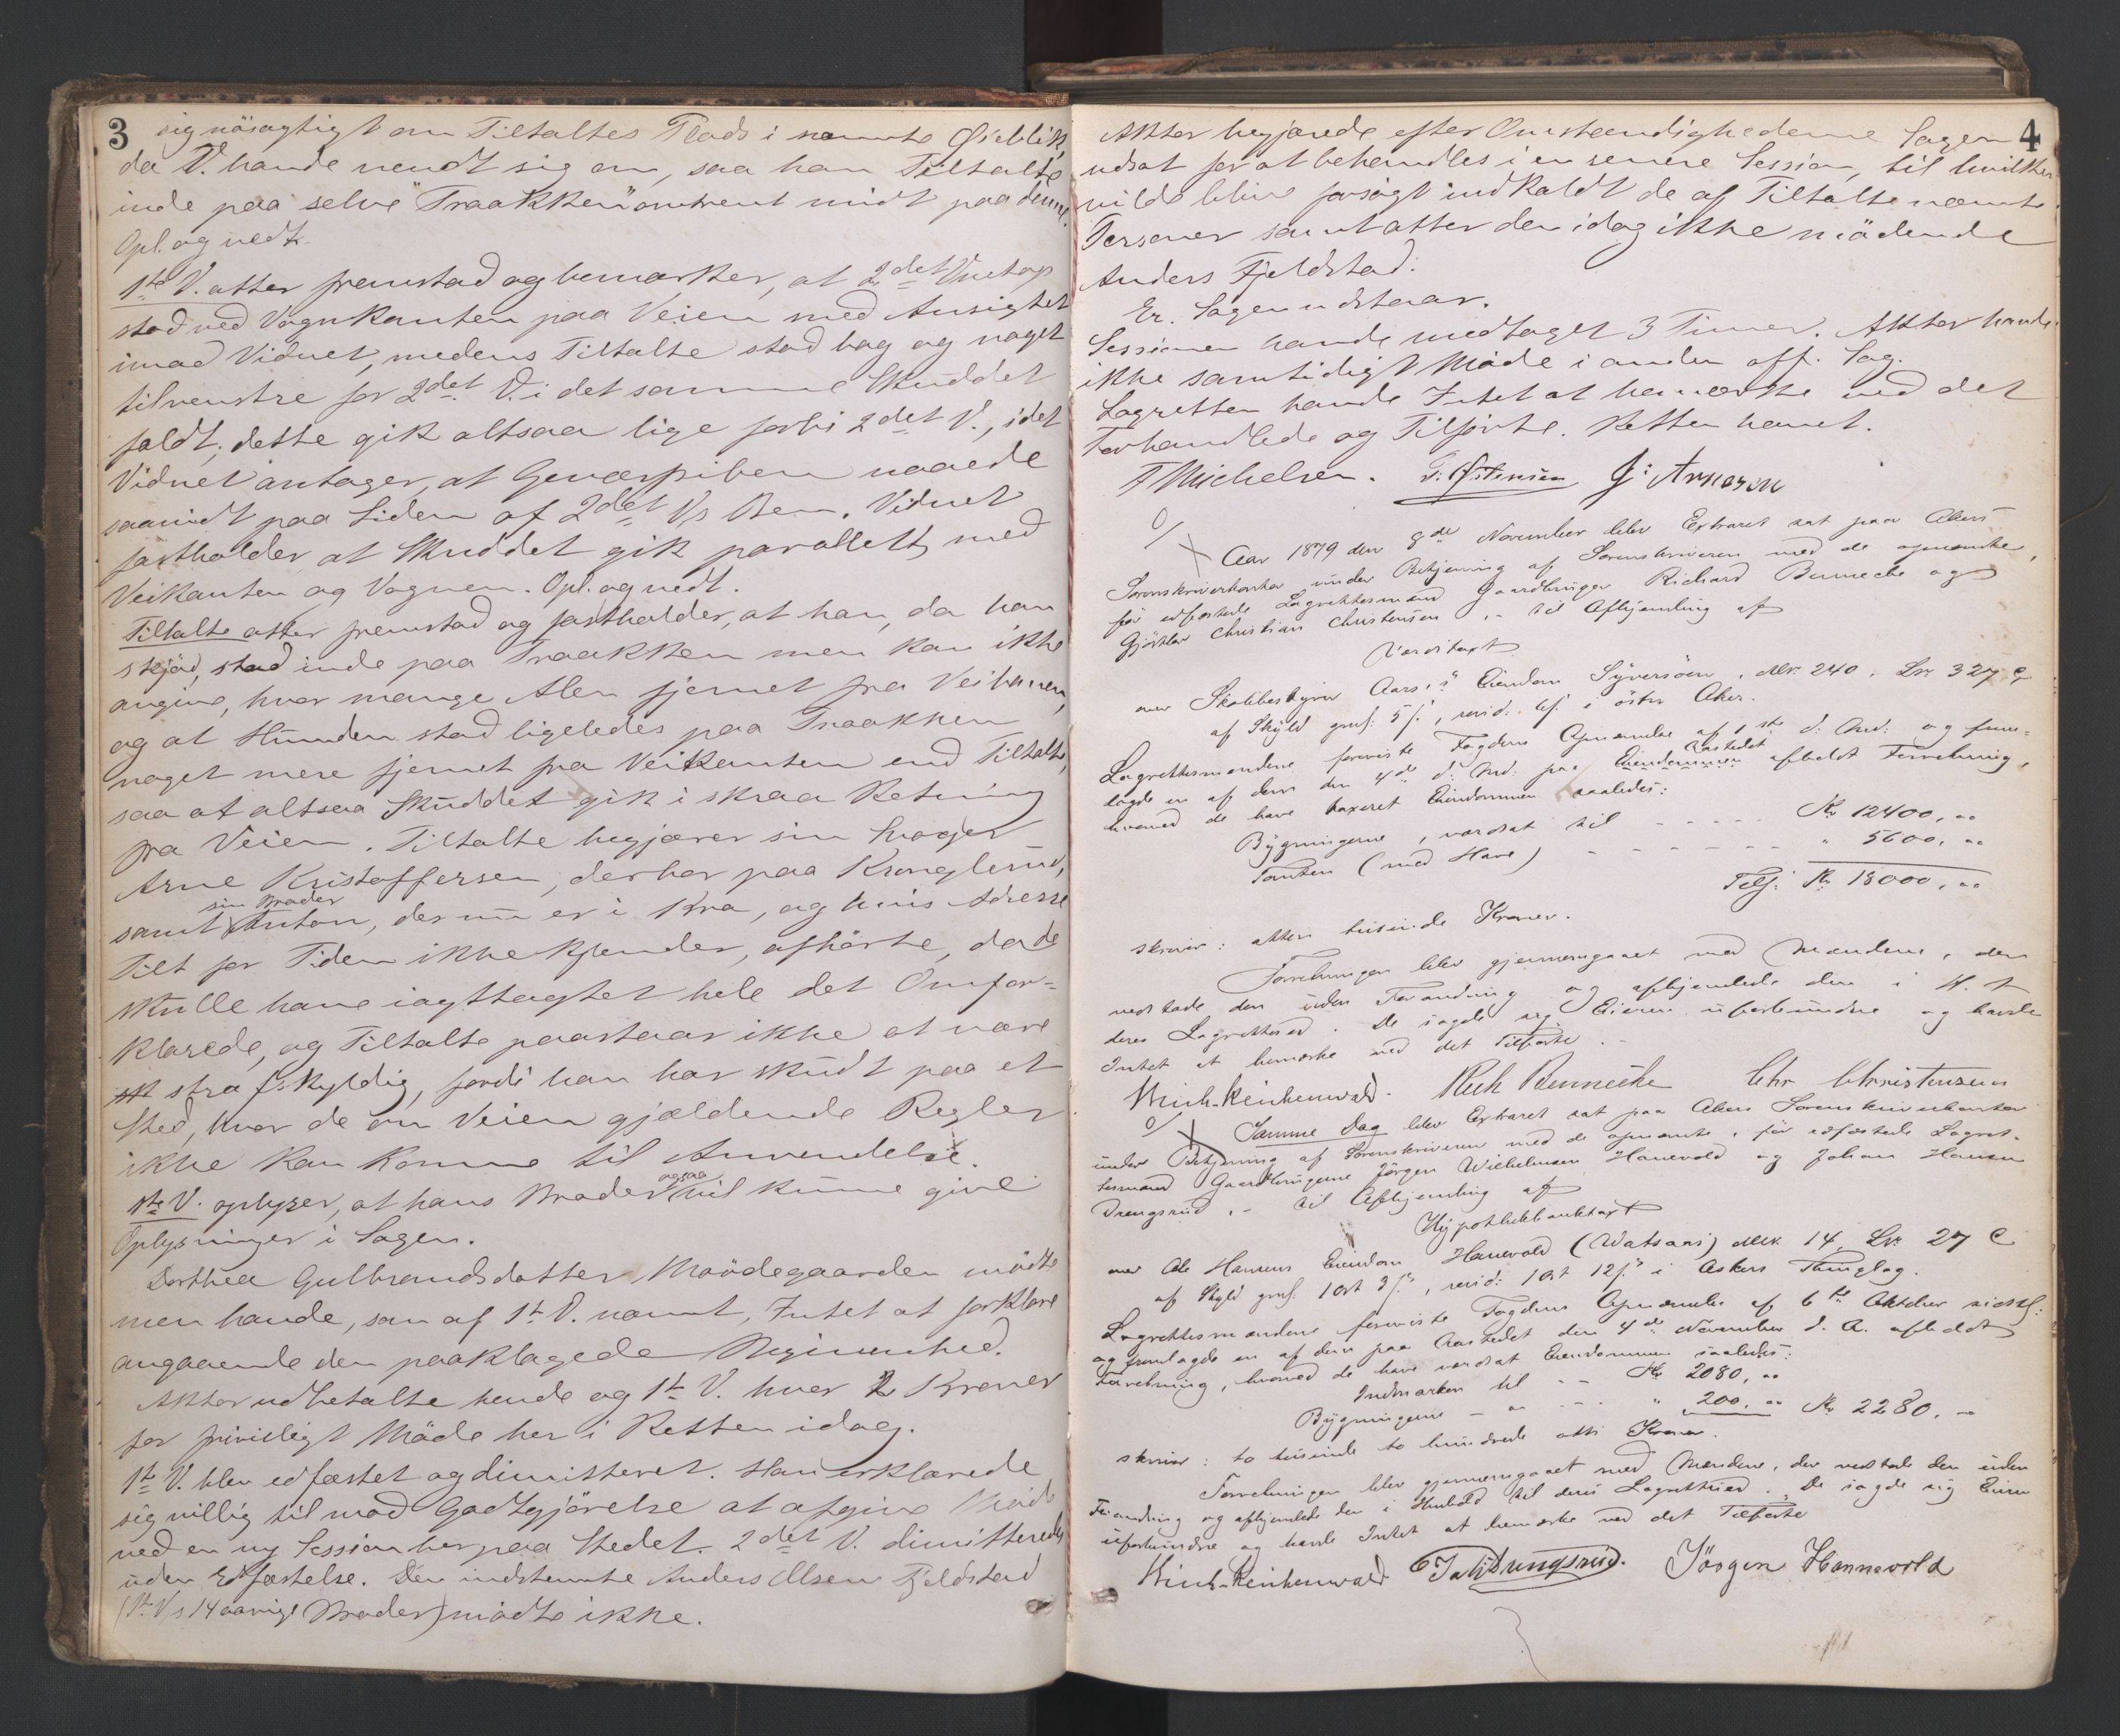 3
sig nöiagtigt om Tiltaltes Plads i nævnte Øieblik,
da V. havde vendt sig om, saa han Tiltalte
inde paa selve "Traakken" omtrent midt paa denne.
Opl. og vedt.
1ste V. atter fremstod og bemærker, at 2det Vnet op
stod ved Vognkanten paa Veien med Ansigtet
imod Vidnet, medens Tiltalte stod bag og noget
tilvenstre for 2det V. i det samme Skuddet
faldt; dette gik altsaa lige forbi 2det V., idet
Vidnet antager, at Geværpiben naaede
saavidt paa Siden af 2det V,s Ben. Vidnet
fastholder, at Skuddet gik parallelt med
Veikanten og Vognen. Opl. og vedt.
Tiltalte atter fremstod og fastholder, at han, da han
skjød, stod inde paa Traakken men kan ikke
angive, hvor mange Alen fjernet fra Veibanen,
og at Hunden stod ligeledes paa Traakken
noget mere fjernet fra Veikanten end Tiltalte,
saa at altsaa Skuddet gik i skraa Retning
fra Veien. Tiltalte begjærer sin Svoger
Arne Kristoffersen, der bor paa Kronglerud,
sin Broder
samt Anton, der nu er i Kra, og hvis Adresse
Tilt for Tiden ikke kjender, afhörte, da de
skulle have iagttaget hele det Omfor-
klarede, og Tiltalte paastaar ikke at være
strafskyldig, fordi han har skudt paa et
Sted, hvor de om Veien gjældende Regler
ikke kan komme til Anvendelse.
ogsaa
1ste V. oplyser, at hans Broder vil kunne give
Oplysninger i Sagen.
Dorthea Gulbrandsdatter, Moödegaarden mödte
men havde, som af 1ste V. nævnt, Intet at forklare
angaaende den paaklagede Begivenhed.
Aktor udbetalte hende og 1ste V. hver 2 Kroner
for frivilligt Möde her i Retten idag.
1ste V. blev edfæstet og dimitteret. Han erklærede
sig villig til mod Godtgjörelse at afgive Möde
ved en ny Session her paa Stedet. 2det V. dimitteredes
uden Edfæstelse. Den indstevnte Anders Olsen Fjeldstad
(1ste V,s 14 aarige Broder) mödte ikke.
4
Aktor begjærede efter Omstændighederne Sagen
udsat for at behandles i en senere Session, til hvilken
vilde blive forsögt indkaldt de af Tiltalte nævnte
Personer samt atter den idag ikke mödende
Anders Fjeldstad.
Er. Sagen udstaar.
Sessionen havde medtaget 3 Timer. Aktor havde
ikke samtidigt Möde i anden off. Sag.
Lagretten havde Intet at bemærke ved det
Forhandlede og Tilförte. Retten hævet.
F Michelsen. P. Østensen J. Arnesen
Aar 1879 den 8de November blev Extraret sat paa Akers
Sorenskriverkontor under Betjening af Sorenskriveren med de opnævnte,
för edfæstede Lagrettesmænd Gaardbruger Richard Bennecke og
Gjörtler Christian Christensen ,- til Afhjemling af
Værditaxt
over Skolebestyrer Aars's Eiendom Syversöen, Mtr. 240, Lnr. 327 c
af Skyld gml. 5 f, revid. 6 f. i östre Aker.
Lagrettesmændene foreviste Fogdens Opnævnelse af 1ste d. Md. og frem-
Aastedet
lagde en af dem den 4de d. Md. paa Eiendommen afholdt Forretning,
hvorved de have taxeret Eiendommen saaledes:
Bygningerne, værdsat til - - - - - Kr 12400, oo
Tomten (med Have) - - - - - - " 5600, oo
Tils: Kr 18000, oo
skriver: atten tusinde Kroner.
Forretningen blev gjennemgaaet med Mændene, der
vedtode den uden Forandring og afhjemlede den i H. t.
deres Lagrettesed. De sagde sig Eieren uforbundne og havde
Intet at bemærke ved det Tilförte.-
Winch-Reichenwald. Rich Bennecke Chr Christensen
Samme Dag blev Extraret sat paa Akers Sorenskriverkontor
under Betjening af Sorenskriveren med de opnævnte, för edfæstede Lagret-
tesmænd Gaardbrugerne Jörgen Wilhelmsen Hanevold og Johan Hansen
Drengsrud ,- til Afhjemling af
Hypothekbanktaxt
over Ole Hansens Eiendom Hanevold (Watsaas) Mtr. 14, Lnr 27 c
af Skyld gml. 1 ort 3 f, revid: 1 Ort 12 f. i Askers Thinglag.
Lagrettesmændene foreviste Fogdens Opnævnelse af 6te Oktober sidstl:
og fremlagde en af dem paa Aastedet den 4de November d. A. afholdt
Forretning, hvorved de have værdsat Eiendommen saaledes:
Indmarken til - - Kr 2080, oo
Bygningerne - " - - - " 200, oo Kr 2280, -
skriver: to tusinde to hundrede otti Kroner.
Forretningen blev gjennemgaaet med Mændene, der vedtode den uden
Forandring og afhjemlede den i Henhold til deres Lagrettesed. De sagde sig Eieren
uforbundne og havde Intet at bemærke ved det Tilförte
Winch-Reichenwald Joh Drengsrud. Jörgen Hannevold